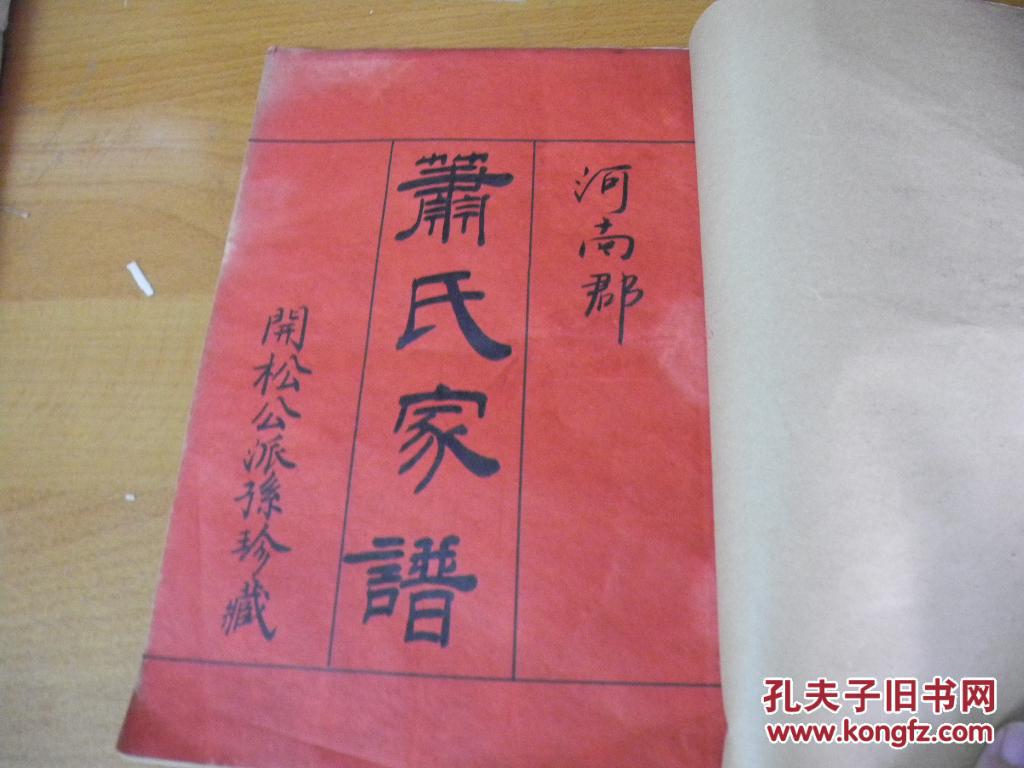 河南郡
蕭氏家譜
開松公派孫珍藏
孔夫子旧书网
www.kongfz.com